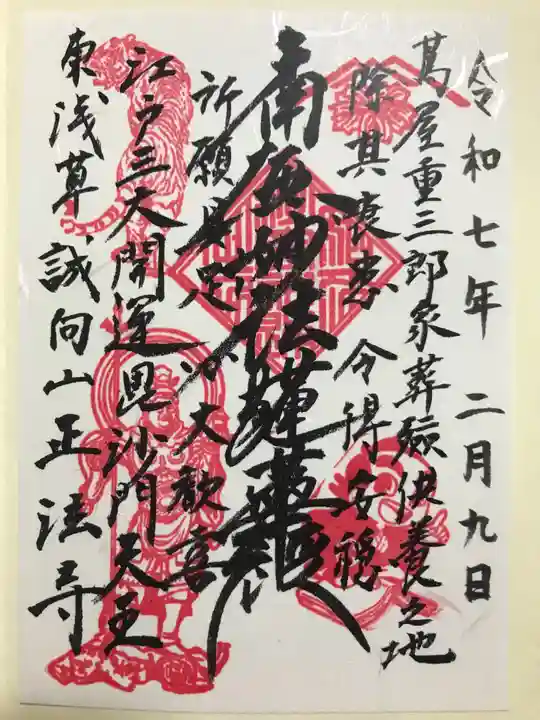 令和七年 二月九日
蔦屋重三郎家葬殮供養之地
除其衰患 令得安穏
南無妙法蓮華経
祈願具足 心大歓喜
江戸三大開運毘沙門天王
東浅草 誠向山正法寺